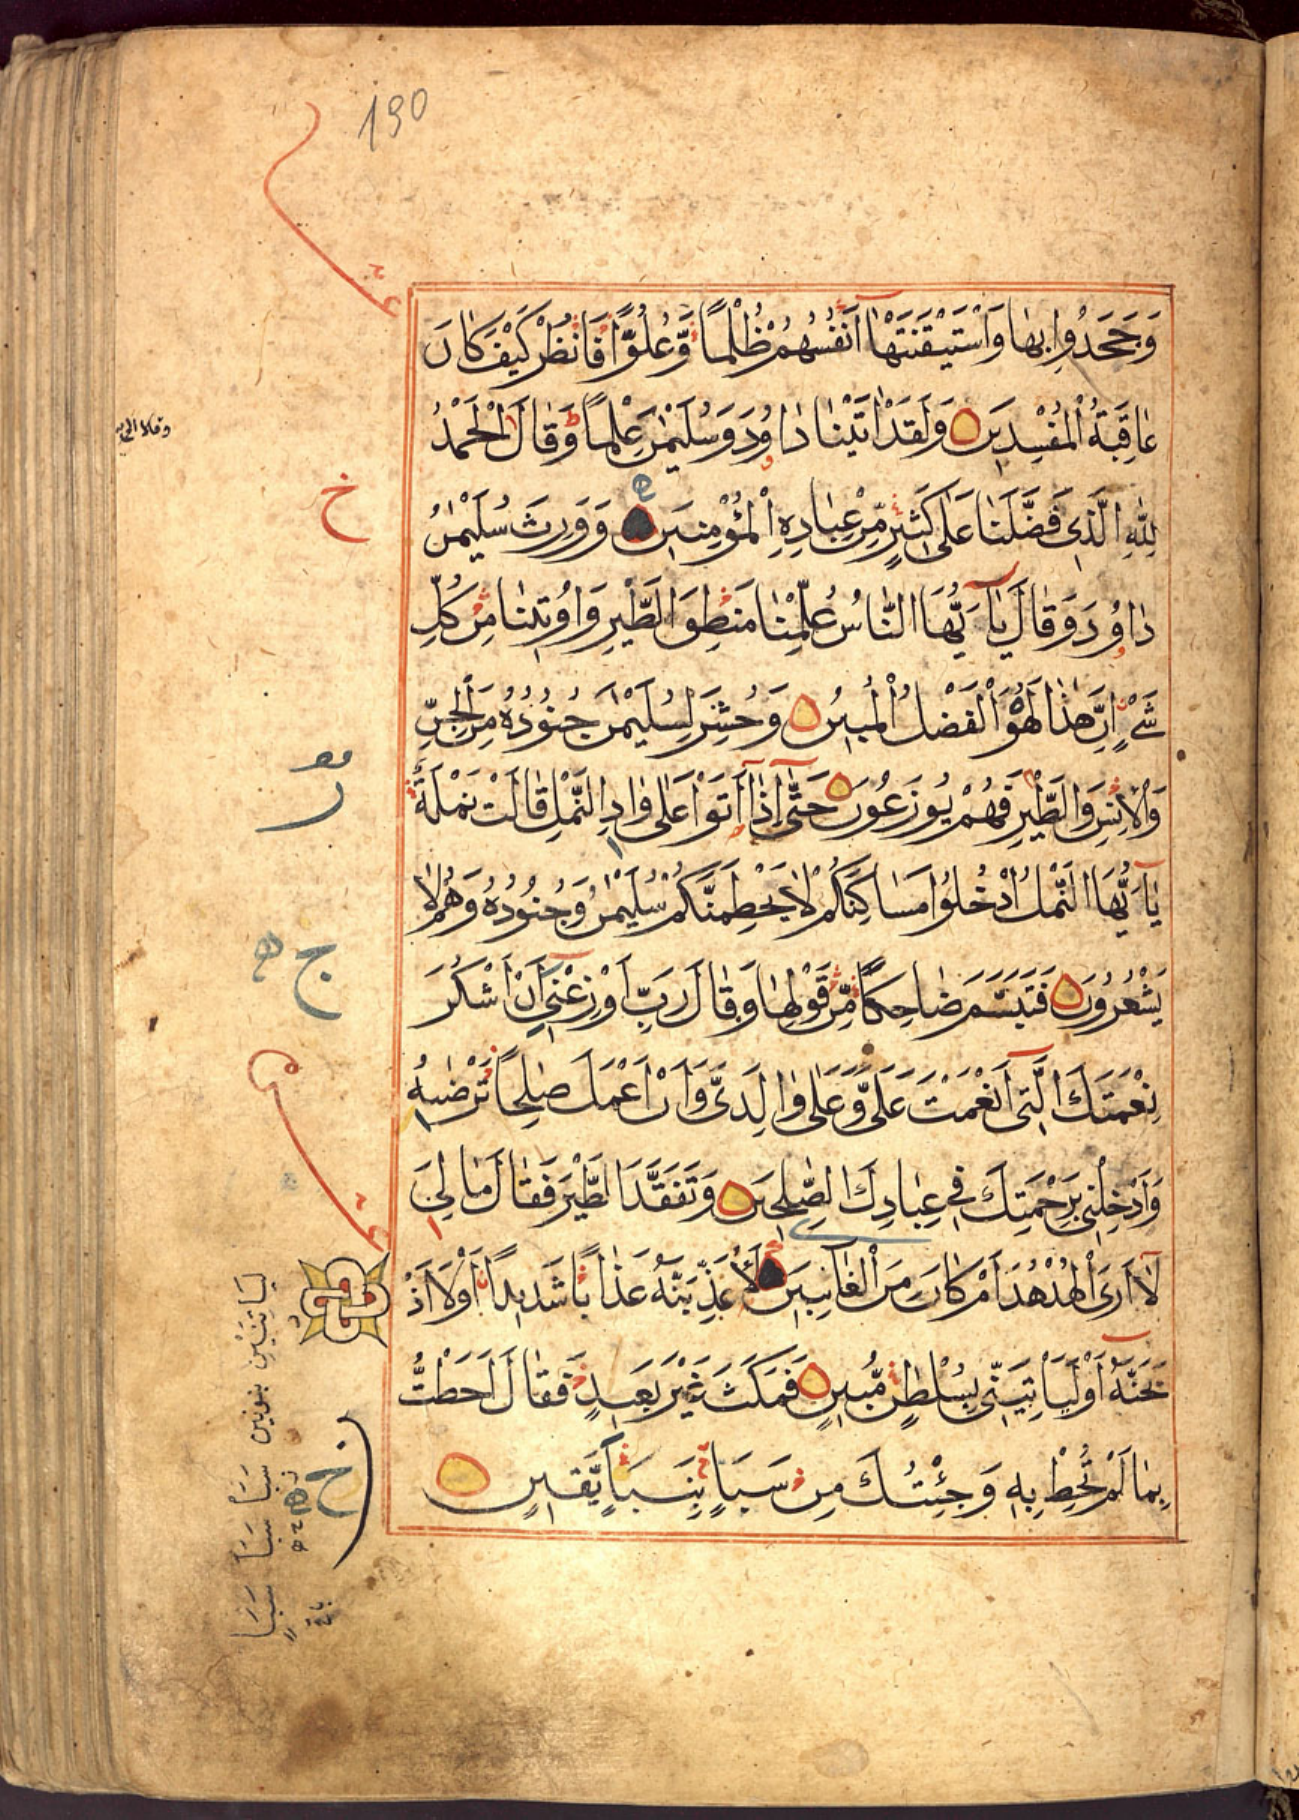 190
وَجَحَدُوا بِهَا وَاسْتَيْقَنَتْهَا أَنْفُسُهُمْ ظُلْمًا وَّعُلُوًّا فَانْظُرْ كَيْفَ كَانَ
عَاقِبَةُ الْمُفْسِدِينَ وَلَقَدْ اٰتَيْنَا دَاوُدَ وَسُلَيْمٰنَ عِلْمًا وَّقَالَا الْحَمْدُ
لِلّٰهِ الَّذِى فَضَّلَنَا عَلٰى كَثِيرٍ مِّنْ عِبَادِهِ الْمُؤْمِنِينَ وَوَرِثَ سُلَيْمٰنُ
دَاوُدَ وَقَالَ يَآ اَيُّهَا النَّاسُ عُلِّمْنَا مَنْطِقَ الطَّيْرِ وَاُوتِينَا مِنْ كُلِّ
شَىْءٍ اِنَّ هٰذَا لَهُوَ الْفَضْلُ الْمُبِينُ وَحُشِرَ لِسُلَيْمٰنَ جُنُودُهُ مِنَ الْجِنِّ
وَالْاِنْسِ وَالطَّيْرِ فَهُمْ يُوزَعُونَ حَتّٰٓى اِذَآ اَتَوْا عَلٰى وَادِ النَّمْلِ قَالَتْ نَمْلَةٌ
يَآ اَيُّهَا النَّمْلُ ادْخُلُوا مَسَاكِنَكُمْ لَا يَحْطِمَنَّكُمْ سُلَيْمٰنُ وَجُنُودُهُ وَهُمْ لَا
يَشْعُرُونَ فَتَبَسَّمَ ضَاحِكًا مِّنْ قَوْلِهَا وَقَالَ رَبِّ اَوْزِعْنِىٓ اَنْ اَشْكُرَ
نِعْمَتَكَ الَّتِىٓ اَنْعَمْتَ عَلَىَّ وَعَلٰى وَالِدَىَّ وَاَنْ اَعْمَلَ صٰلِحًا تَرْضٰيهُ
وَاَدْخِلْنِى بِرَحْمَتِكَ فِى عِبَادِكَ الصّٰلِحِينَ وَتَفَقَّدَ الطَّيْرَ فَقَالَ مَا لِىَ
لَآ اَرَى الْهُدْهُدَ اَمْ كَانَ مِنَ الْغَائِبِينَ لَاُعَذِّبَنَّهُ عَذَابًا شَدِيدًا اَوْ لَا اَذْ
بَحَنَّهُ اَوْ لَيَاْتِيَنِّى بِسُلْطٰنٍ مُّبِينٍ فَمَكَثَ غَيْرَ بَعِيدٍ فَقَالَ اَحَطْتُ
بِمَا لَمْ تُحِطْ بِهِ وَجِئْتُكَ مِنْ سَبَاٍ بِنَبَاٍ يَّقِينٍ
وقالا
خ
ج
خ
ليأتينني بنونين سبأ سبأ سبأ